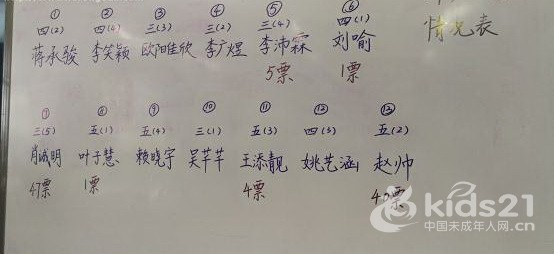 ① ② ③ ④ ⑤ ⑥
四(2) 四(4) 三(3) 三(2) 三(4) 四(1)
蒋承骏 李笑颖 欧阳维欣 李广煜 李沛霖 刘喻
5票 1票
情况表
⑦ ⑧ ⑨ ⑩ ⑪ ⑫ ⑬
三(5) 五(1) 五(4) 三(1) 五(3) 四(3) 五(2)
肖诚明 叶子慧 赖晓宇 吴芊芊 王添靓 姚艺涵 赵帅
47票 1票 4票 票
kids21
中国未成年人网.cn